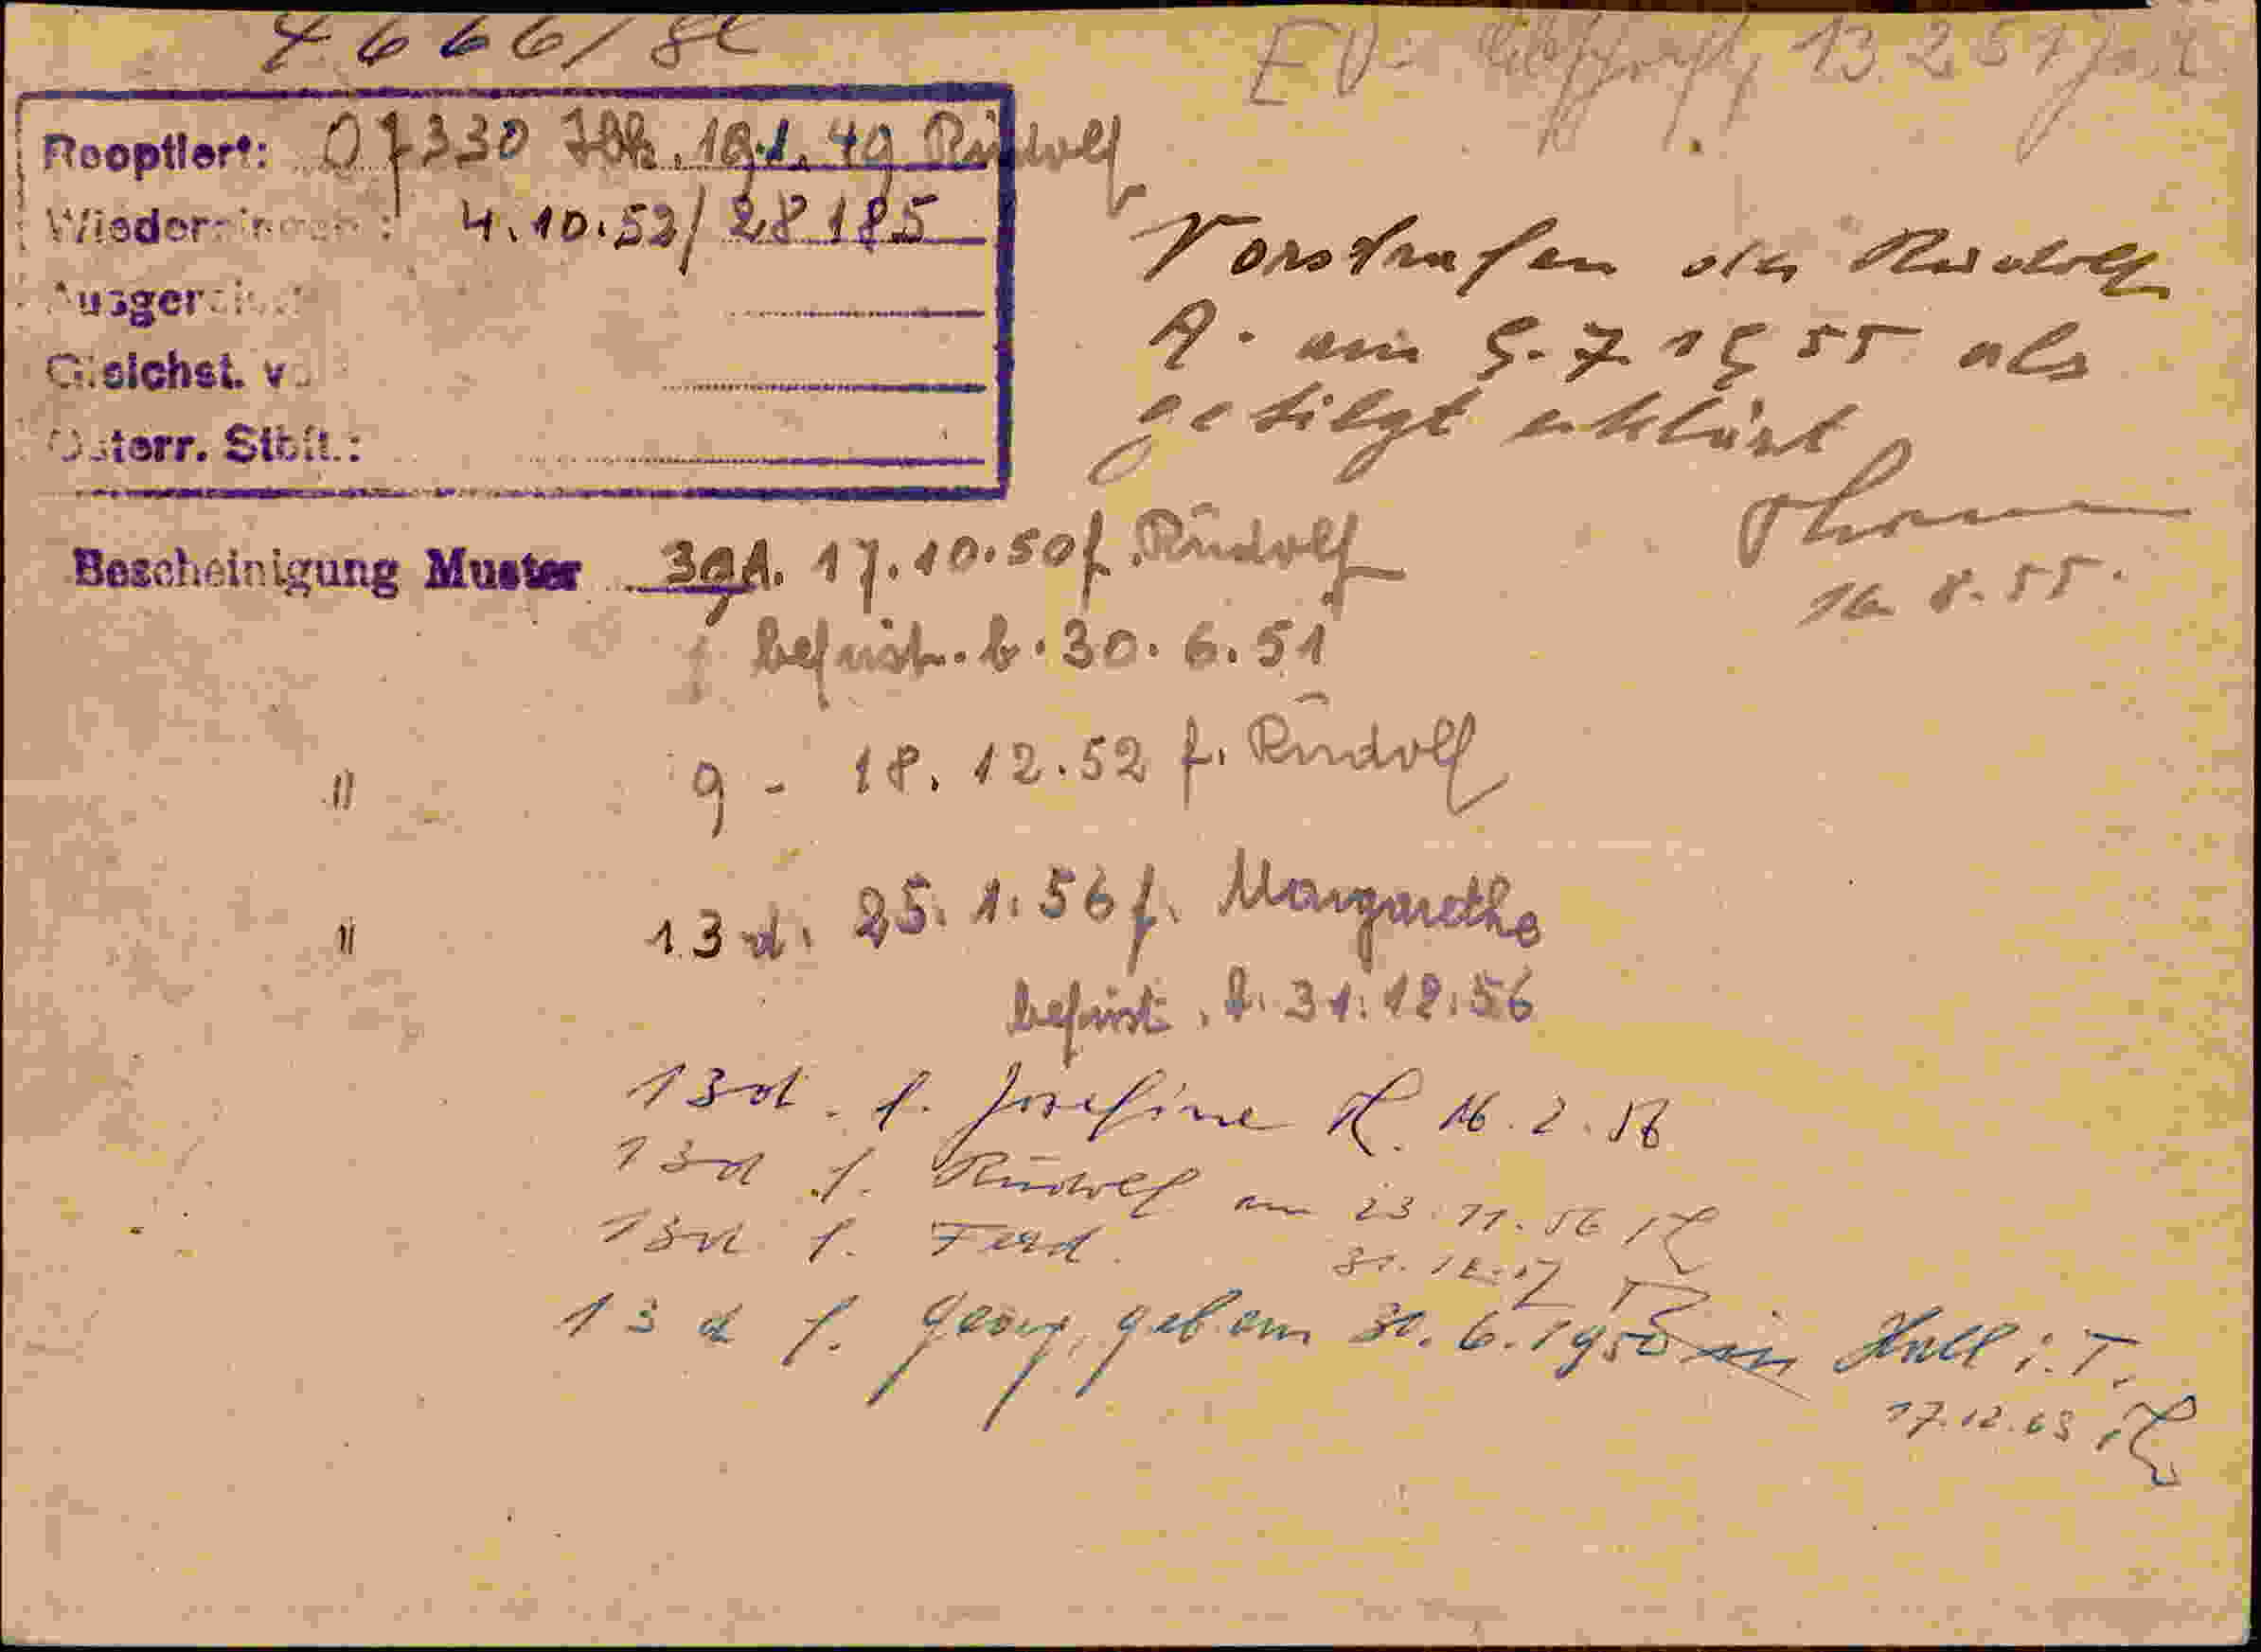 4666/St
EV. 13.2.51
Rooptiert: 07330 Ibk. 19.1.49 Rudolf
Wieder : 4.10.52/28185
Ausger
Gleichst. v
Österr. Stbft.:
Vorstrafen des Rudolf
A. am 9.7.1955 als
getilgt erklärt
16.8.55.
Bescheinigung Muster 3gA. 17.10.50 f. Rudolf
befrist. b. 30.6.51
" g - 18.12.52 f. Rudolf
" 13 d. 25.1.56 f. Margarethe
befrist. b. 31.12.56
13d. f. Josefine 16.2.56
13d f. Rudolf am 23.11.56
13d f. Ferd. 31.12.57
13 d f. Georg, geb. am 30.6.1950 in Hall i. T.
17.12.63